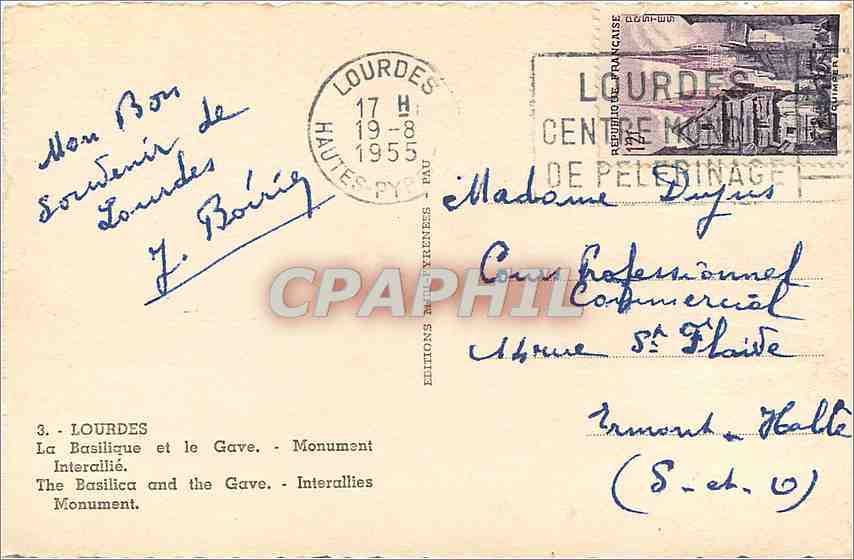 Mon Bon
Souvenir de
Lourdes
LOURDES
17 H
19-8
1955
HAUTES-PYR
LOURDES
CENTRE MONDI
DE PELERINAGE
REPUBLIQUE FRANÇAISE
POSTES
12F
QUIMPER
Madame
Cours Professionnel
Commercial
rue St Flaive
Ermont-Halte
(S-et-O)
EDITIONS MIDI-PYRENEES - PAU
CPAPHIL
3. - LOURDES
La Basilique et le Gave. - Monument
Interallié.
The Basilica and the Gave. - Interallies
Monument.